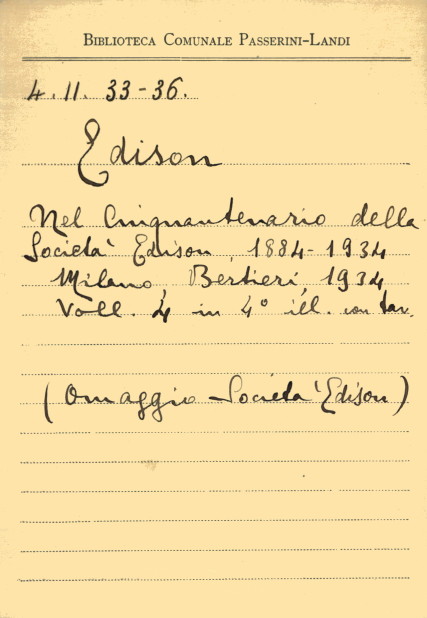 Biblioteca Comunale Passerini-Landi
4. 11. 33-36.
Edison
Nel Cinquantenario della
Società Edison, 1884-1934
Milano, Bertieri, 1934
Voll. 4 in 4° ill. con tav.
(Omaggio Società Edison)